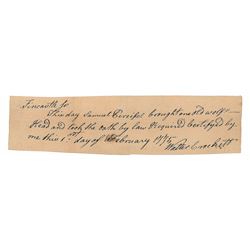 Fincastle fc
This day Samuel Percifel brought one old wolf
Head and took the oath by law Required Certified by
me this 1st day of February 1775
Walter Crockett